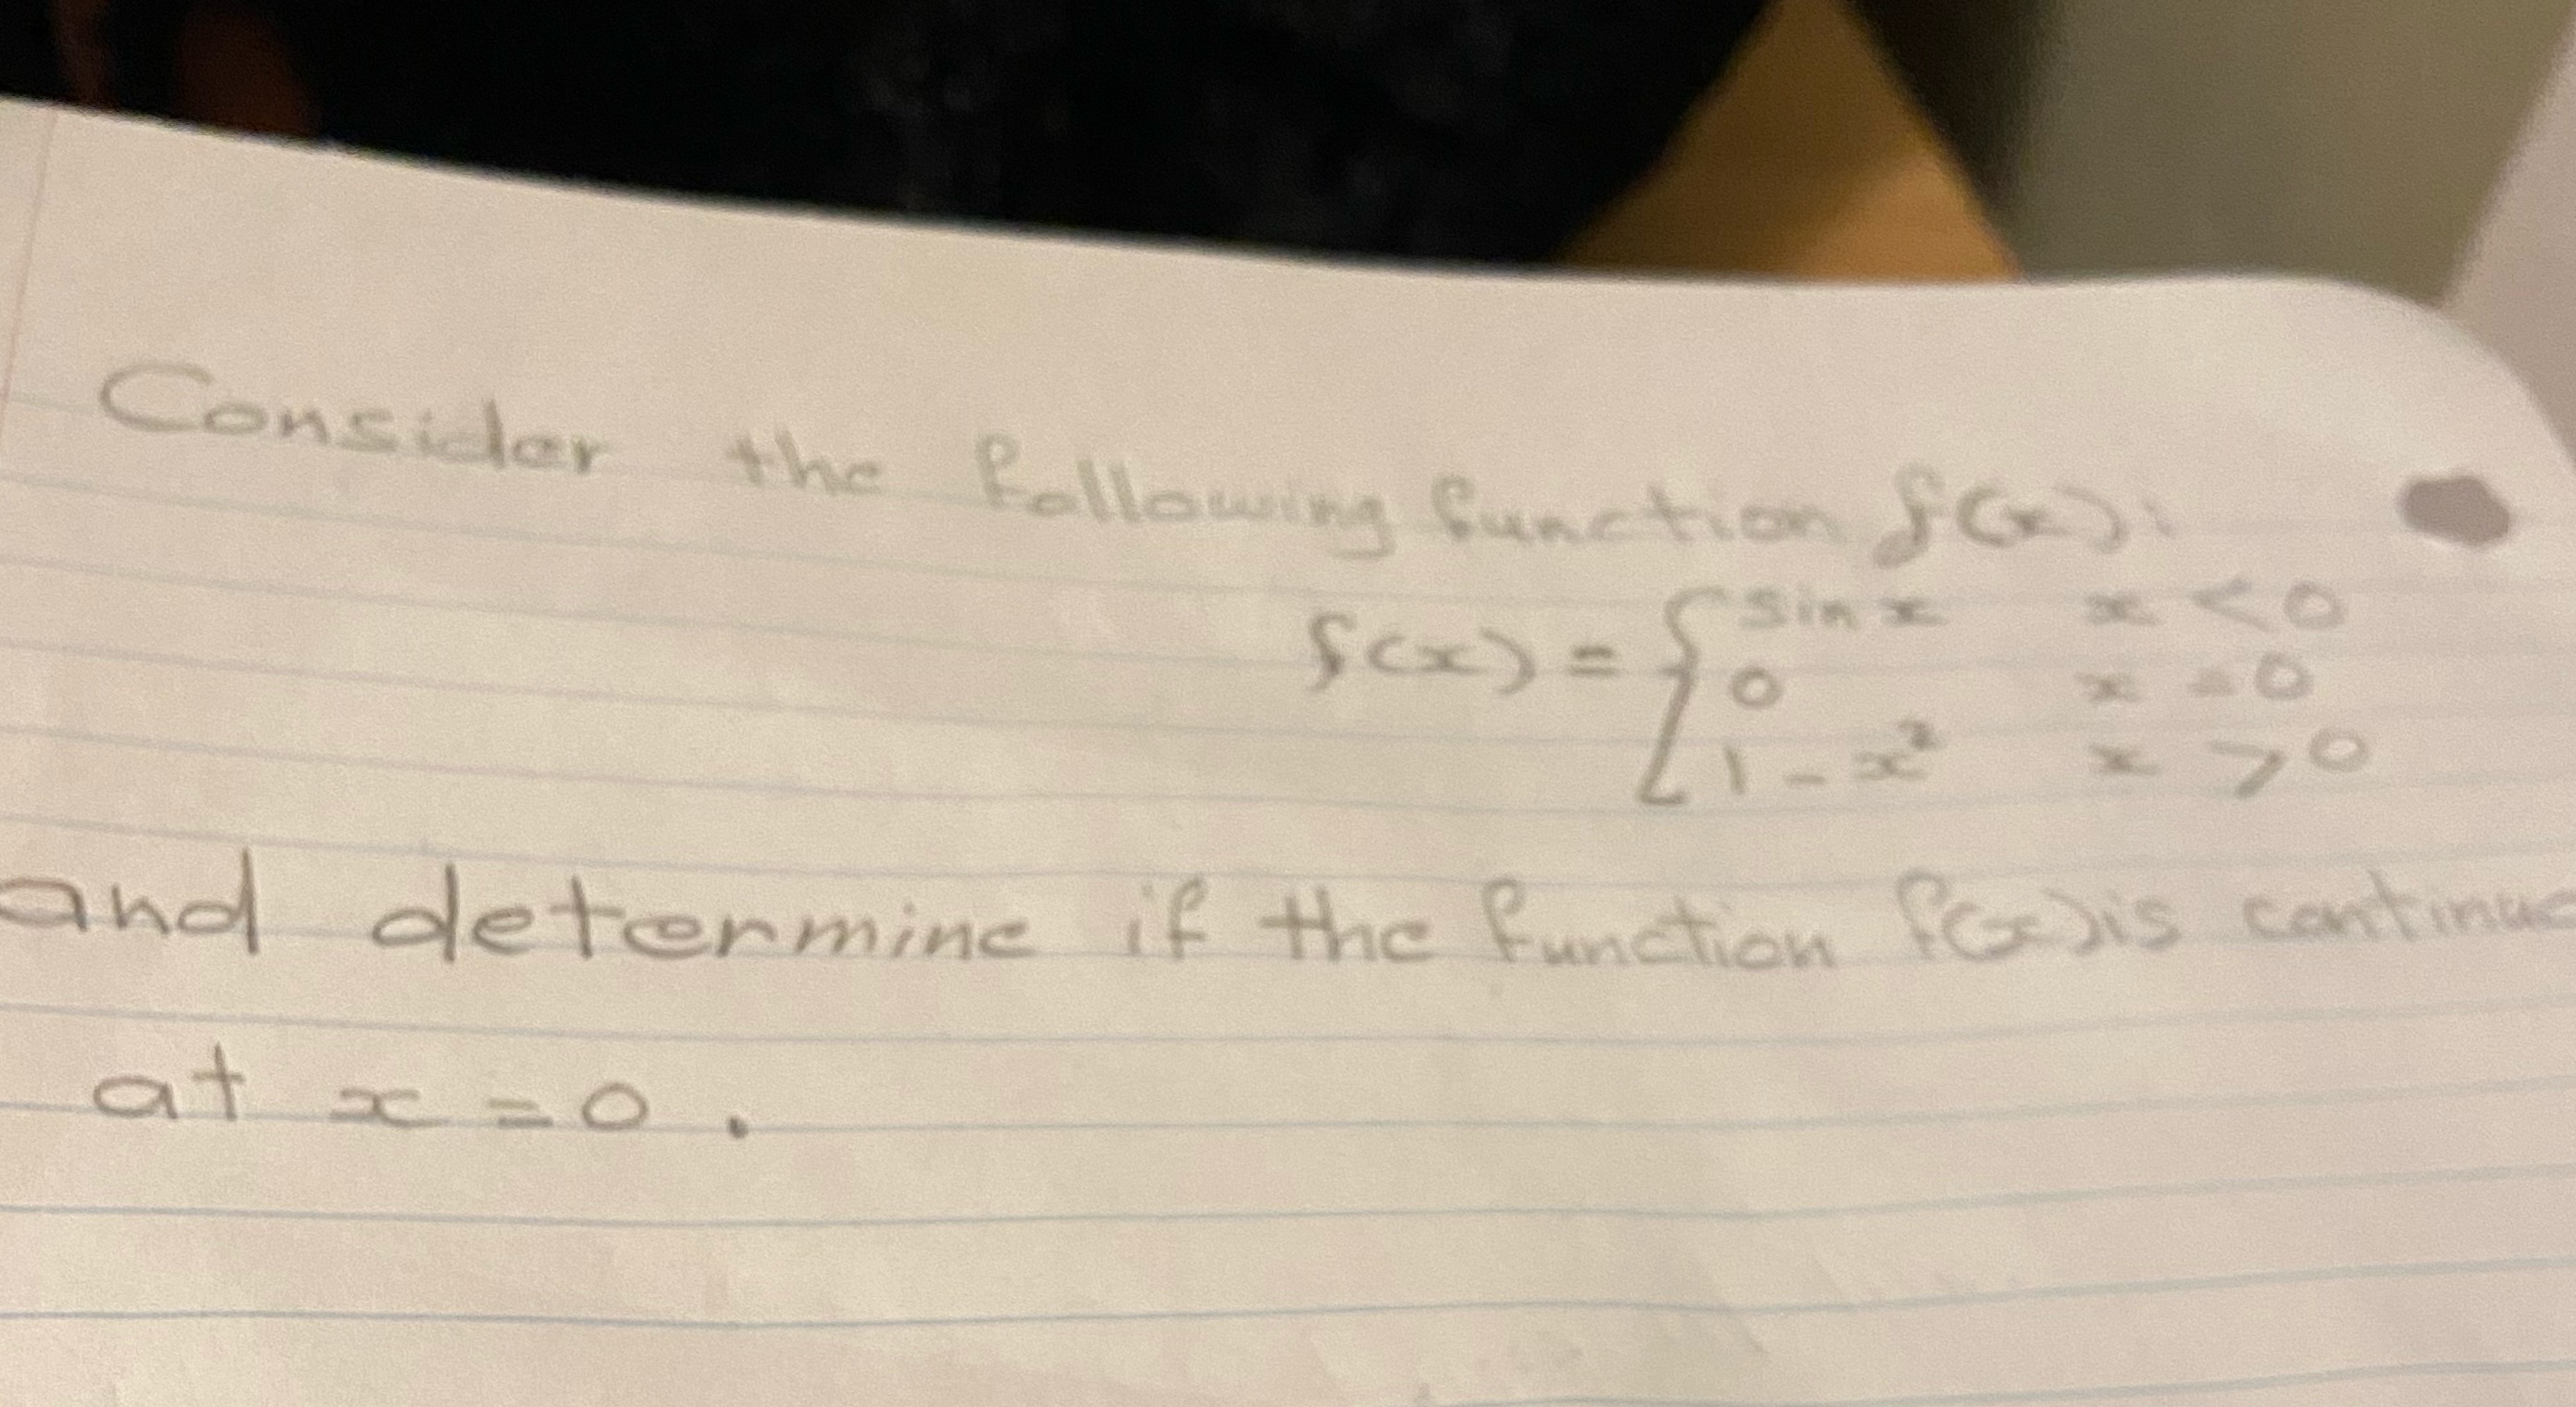 Consider the following function f(x):
f(x) = { sin x x < 0
0 x = 0
1 - x² x > 0
and determine if the function f(x) is continuo
at x = 0 .